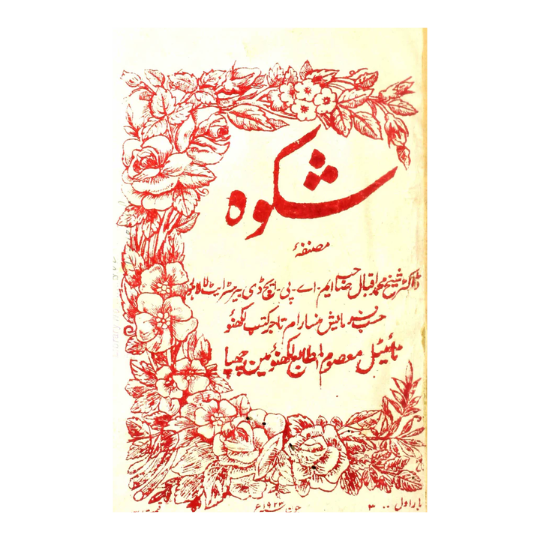 شکوہ
مصنفۂ
ڈاکٹر شیخ محمد اقبال صاحب ایم - اے - پی - ایچ ڈی بیرسٹر ایٹ لا لاہور
حسب فرمایش منسارام تاجر کتب لکھنؤ
ٹائیٹل معصوم المطابع لکھنؤ مین چھپا
بار اول ۳۰۰
جون ۱۹۲۳ء